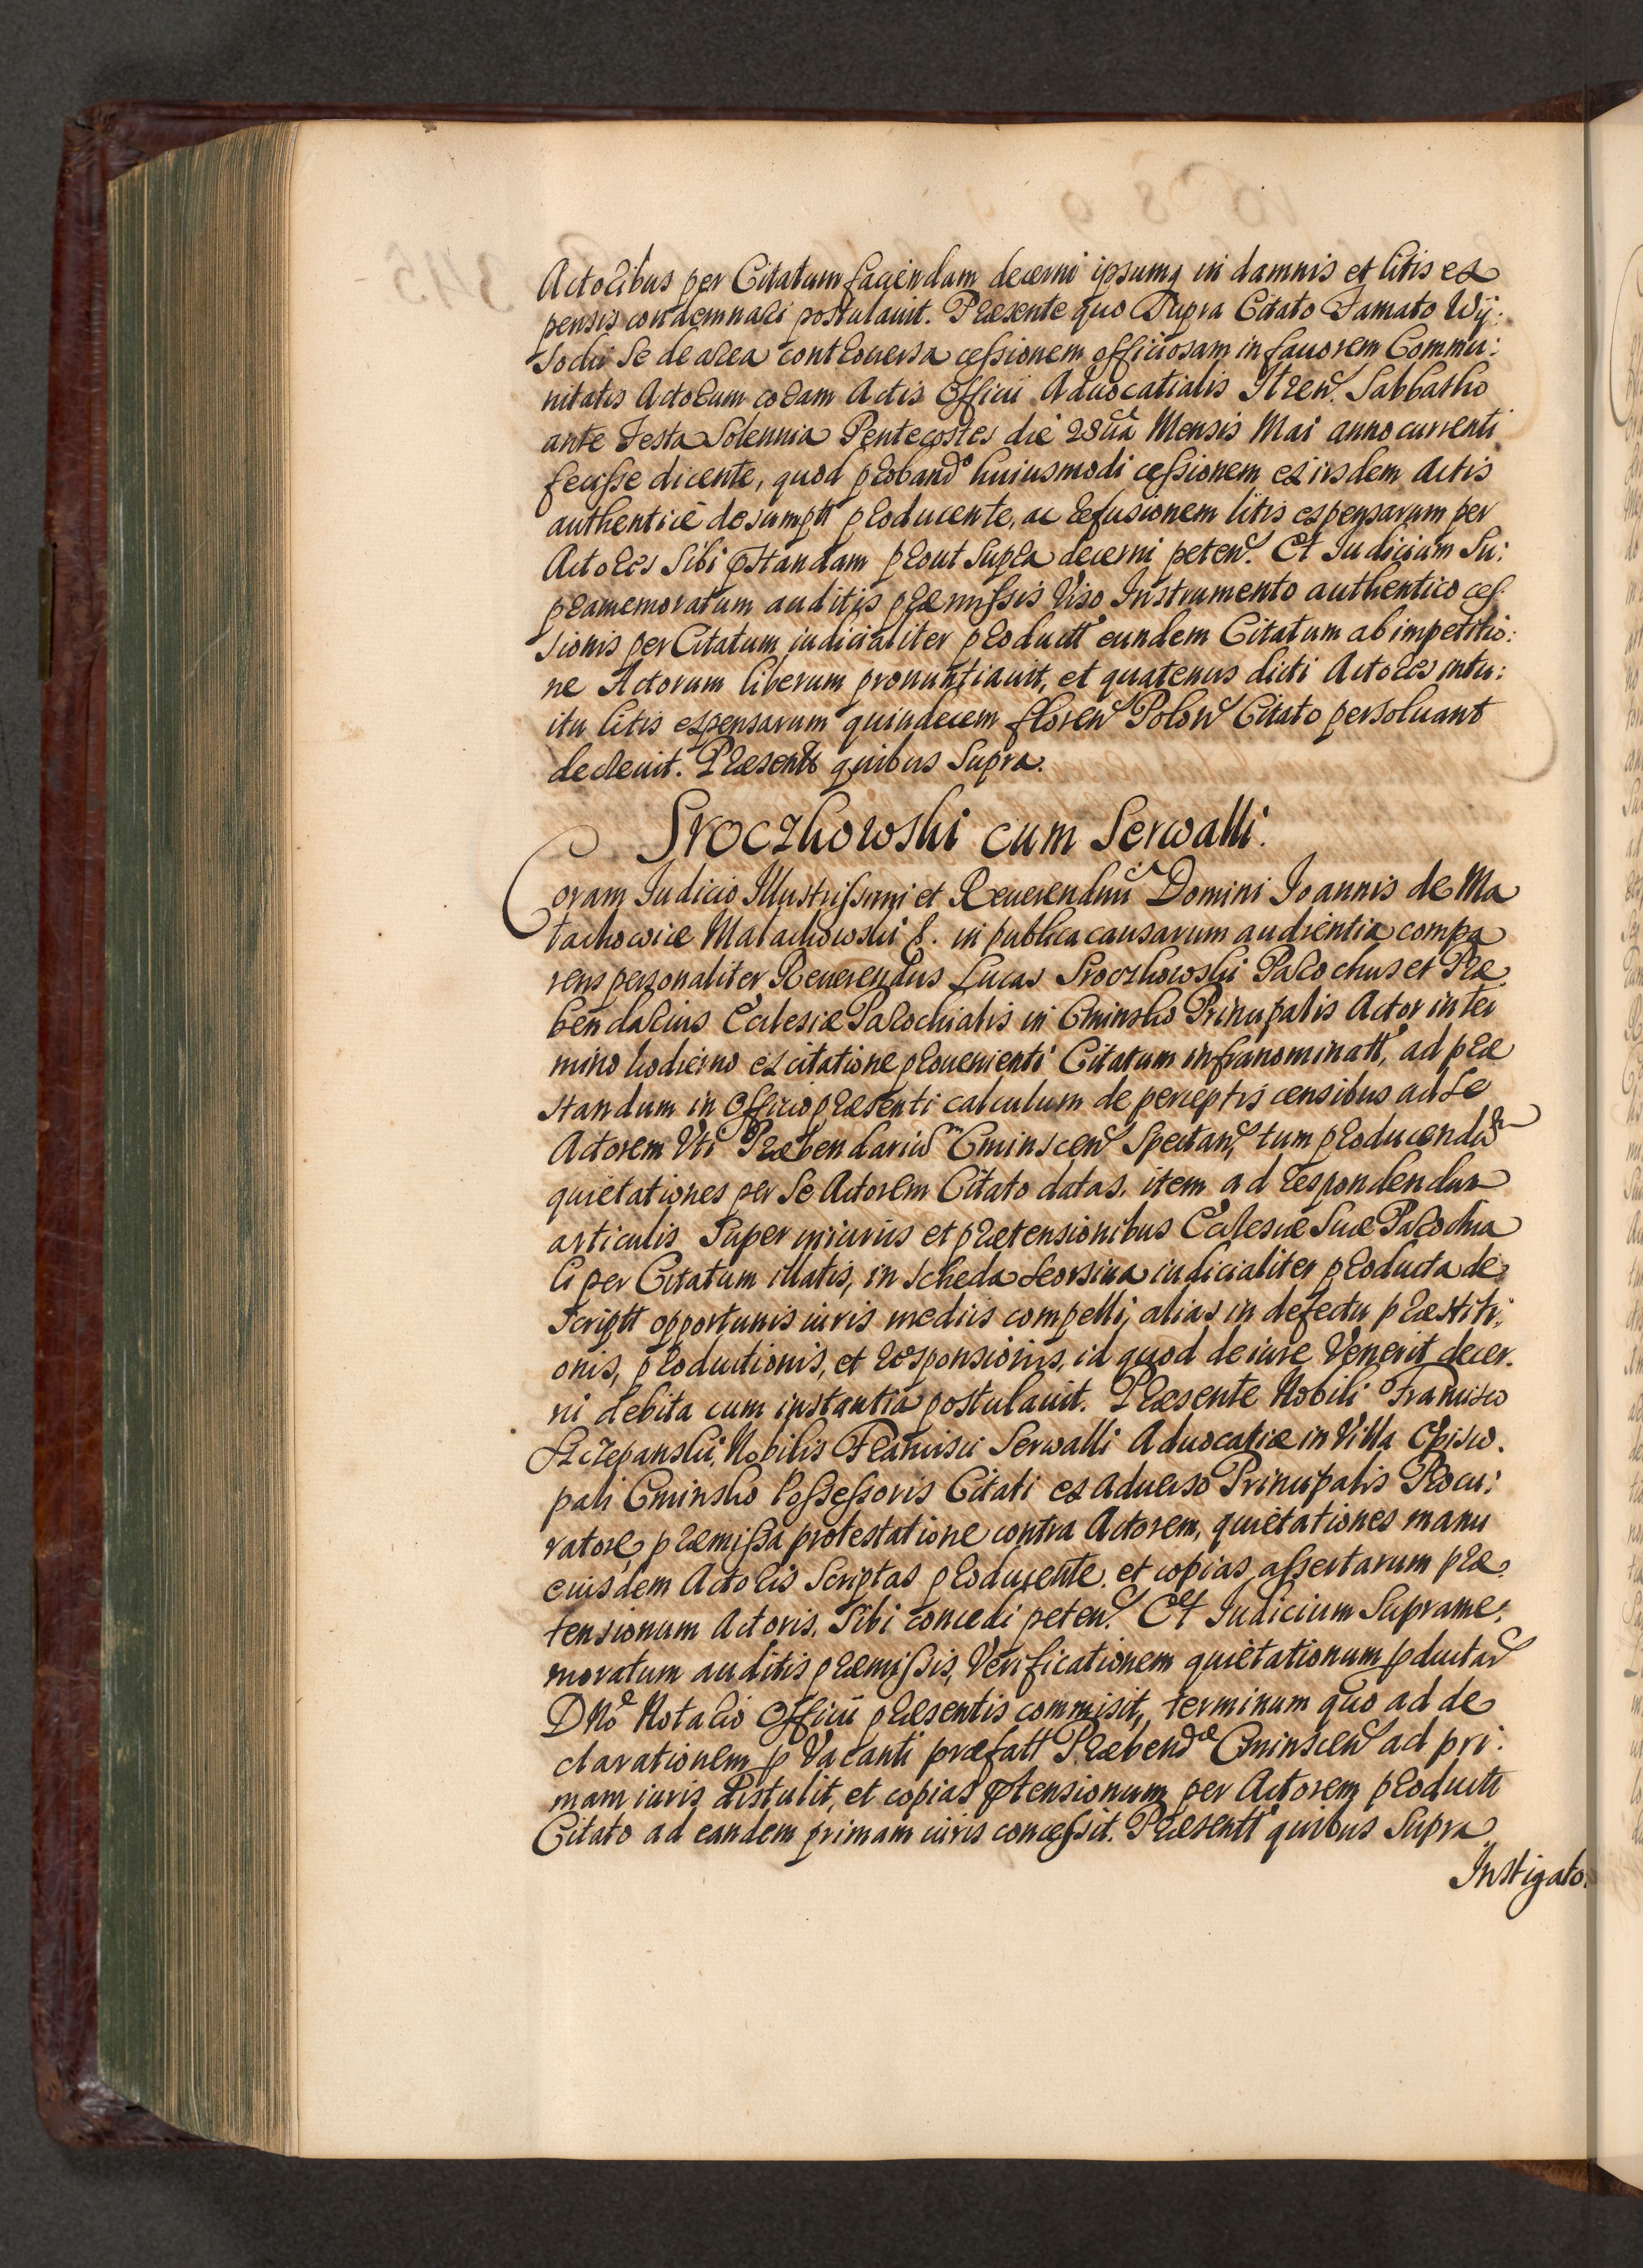 Actoribus per Citatum faciendam decerni ipsumq in damnis et litis ex
pensis condemnari postulauit. Præsente quo Supra Citato Famato Wij:
Sodii Se de area controuersa cessionem officiosam in fauorem Commu:
nitatis Actorum coram Actis Officii Aduocatialis Ilzen. Sabbatho
ante Festa Solennia Pentecostes die 28ua Mensis Mai anno currenti
fecisse dicente, quod proband° huiusmodi cessionem ex iisdem Actis
authentice desumptt producente, ac refusionem litis expensarum per
Actores Sibi pstandam prout Supra decerni peten. Et Iudicium Su:
pramemoratum auditis præmissis Viso Instrumento authentico ces:
sionis per Citatum iudicialiter productt eundem Citatum ab impetitio:
ne Actorum liberum pronuntiauit, et quatenus dicti Actores intu:
itu litis expensarum quindecem floren Polon Citato persoluant
decreuit. Præsentt quibus Supra.
Sroczkowski cum Serwalli.
Coram Iudicio Illustrissimi et Reuerendmi Domini Ioannis de Ma
lachowice Malachowski &. in publica causarum audientia compa
rens personaliter Reuerendus Lucas Sroczkowski Parochus et Præ
bendarius Ecclesiæ Parochialis in Cminsko Principalis Actor in ter
mino hodierno ex citatione prouenienti Citatum infranominatt, ad præ
standum in Officio præsenti calculum de perceptis censibus ad Se
Actorem Vti Præbendariũ Cminscen Spectan, tum producendũ
quietationes per Se Actorem Citato datas. item ad respondendum
articulis Super iniuriis et prætensionibus Ecclesiæ Suæ Parochia
li per Citatum illatis, in Scheda Seorsiua iudicialiter producta de
scriptt opportunis iuris mediis compelli, alias in defectu præstiti:
onis, productionis, et responsionis, id quod de iure Venerit decer.
ni debita cum instantia postulauit. Præsente Nobili Francisco
Szczepanski, Nobilis Francisci Serwalli Aduocatiæ in Villa Episco.
pali Cminsko Possessoris Citati ex aduerso Principalis Procu:
ratore præmissa protestatione contra Actorem, quietationes manu
eiusdem Actoris Scriptas producente. et copias assertarum præ
tensionum Actoris. Sibi concedi peten. Et Iudicium Suprame:
moratum auditis præmissis, Verificationem quietationum pductar
DNo Notario Officii præsentis commisit, terminum quo ad de
clarationem p Vacanti præfatt Præbendæ Cminscen ad pri:
mam iuris distulit, et copias ptensionum per Actorem productt
Citato ad eandem primam iuris concessit. Præsentt quibus Supra
Instigato